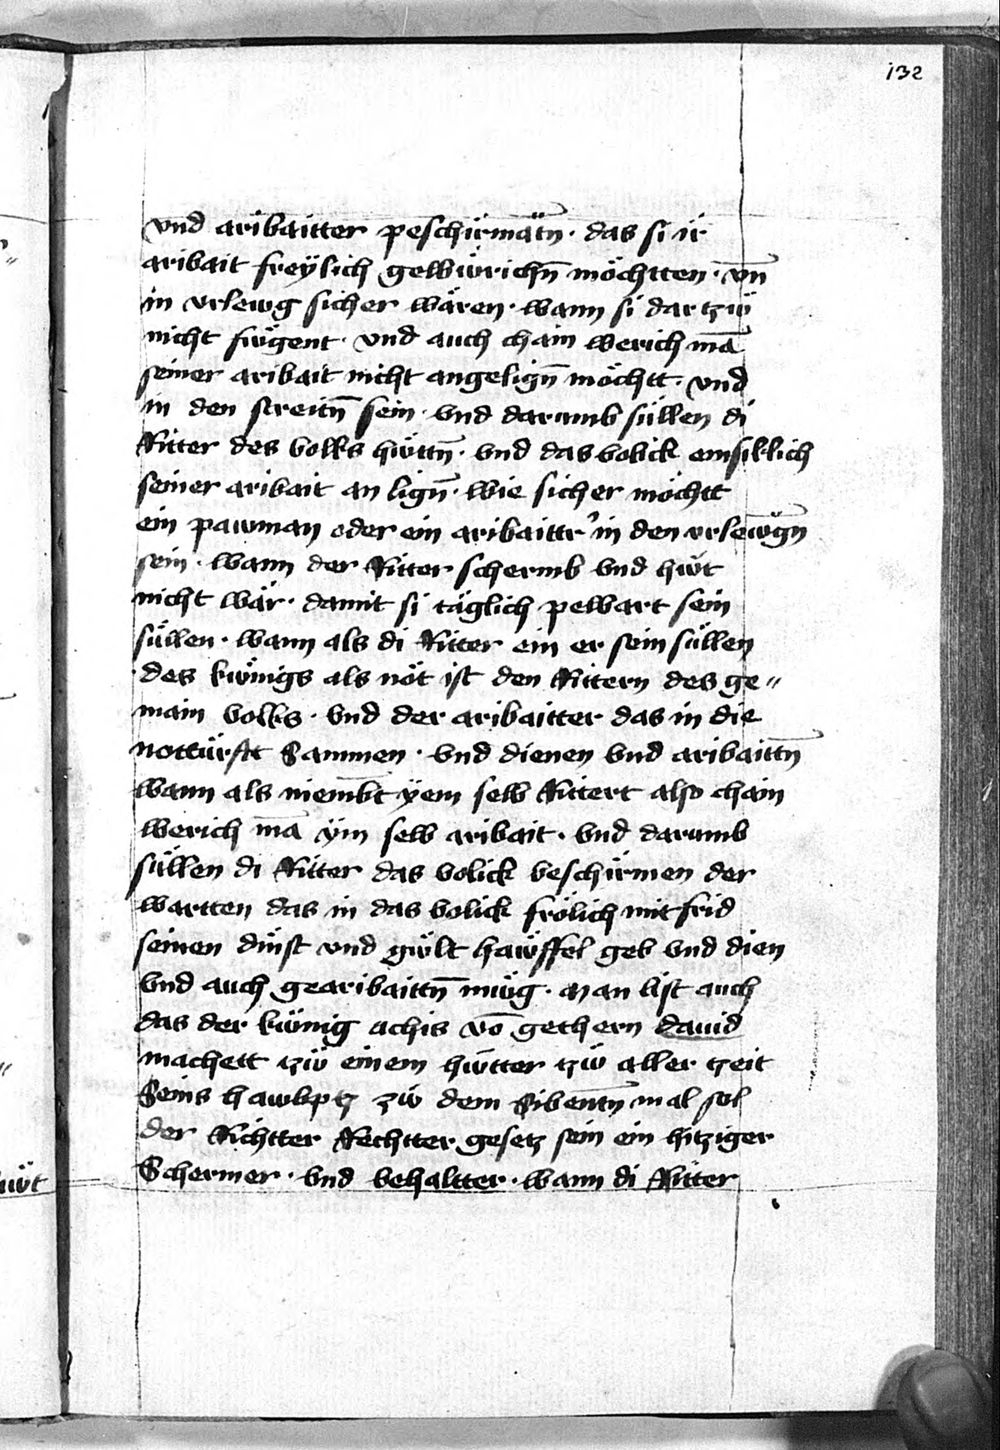 132
vnd aribaitter peschürmätn̄ · das si ir
aribait freÿlich gelbürichn̄ möchtten · vn̄
in vrlewg sicher wären · wann si dartzü
nicht fügent · vnd auch chain werich mā
seiner aribait nicht angelign̄ möchtt · vnd
in den streitn̄ sein · vnd darumb süllen di
Ritter des volks hüttn̄ · vnd das volick emsiklich
seiner aribait an lign̄ · wie sicher möchtt
ein pawman oder ein aribaittr̕ in den vrlewgn̄
sein · wann der Ritter schermb vnd hüt
nicht wär · damit si täglich pewart sein
süllen · wann als di Ritter ein er sein süllen
des künigs als nöt ist den Rittern des ge〃
main volks · vnd der aribaitter das in die
notturftt Sammen · vnd dienen vnd aribaittn̄
wann als niemb̄t ÿem selb Rittert also chain
werich mā ÿm selb aribait · vnd darumb
süllen di Ritter das volick beschürmen der
wartten das in das volick frölich mit frid
seinen dinst vnd gült hawffel geb vnd dien
vnd auch gearibaittn̄ müg · Man list auch
das der künig achis vō gethern dauid
machett tzü einem hütter tzü aller tzeit
Seins hawbptz zü dem Sibentn̄ mal sol
der Richtter Rechtter gesetz sein ein hitziger
Schermer · vnd behaltter · wann di Ritter
hüt